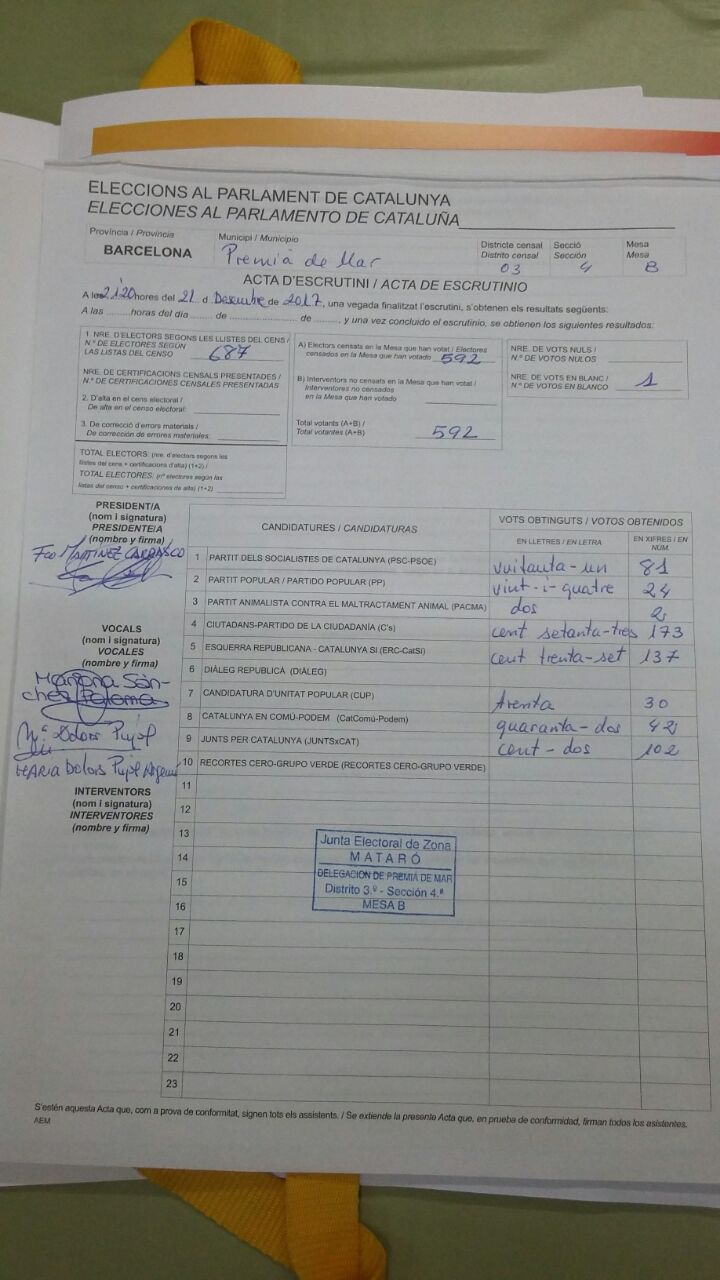 ELECCIONS AL PARLAMENT DE CATALUNYA
ELECCIONES AL PARLAMENTO DE CATALUÑA
Província / Provincia
BARCELONA
Municipi / Municipio
Premià de Mar
Districte censal
Distrito censal
03
Secció
Sección
4
Mesa
Mesa
B
ACTA D'ESCRUTINI / ACTA DE ESCRUTINIO
A les 21'20 hores del 21 d Desembre de 2017, una vegada finalitzat l'escrutini, s'obtenen els resultats següents:
A las ......... horas del día ...... de ........................ de ........., y una vez concluido el escrutinio, se obtienen los siguientes resultados:
1. NRE. D'ELECTORS SEGONS LES LLISTES DEL CENS /
N.º DE ELECTORES SEGÚN
LAS LISTAS DEL CENSO 687
NRE. DE CERTIFICACIONS CENSALS PRESENTADES /
N.º DE CERTIFICACIONES CENSALES PRESENTADAS
2. D'alta en el cens electoral /
De alta en el censo electoral:
3. De correcció d'errors materials /
De corrección de errores materiales:
TOTAL ELECTORS: (nre. d'electors segons les
llistes del cens + certificacions d'alta) (1+2) /
TOTAL ELECTORES: (nº electores según las
listas del censo + certificaciones de alta) (1+2)
A) Electors censats en la Mesa que han votat / Electores
censados en la Mesa que han votado 592
B) Interventors no censats en la Mesa que han votat /
Interventores no censados
en la Mesa que han votado
Total votants (A+B) /
Total votantes (A+B) 592
NRE. DE VOTS NULS /
N.º DE VOTOS NULOS
NRE. DE VOTS EN BLANC /
N.º DE VOTOS EN BLANCO 1
PRESIDENT/A
(nom i signatura)
PRESIDENTE/A
(nombre y firma)
Fco MARTÍNEZ CARRASCO
VOCALS
(nom i signatura)
VOCALES
(nombre y firma)
Mariona Sán-
chez Paloma
Mª Dolors Pujol
MARIA Dolors Pujol
INTERVENTORS
(nom i signatura)
INTERVENTORES
(nombre y firma)
CANDIDATURES / CANDIDATURAS
VOTS OBTINGUTS / VOTOS OBTENIDOS
EN LLETRES / EN LETRA
EN XIFRES / EN NÚM.
1 PARTIT DELS SOCIALISTES DE CATALUNYA (PSC-PSOE) vuitanta-un 81
2 PARTIT POPULAR / PARTIDO POPULAR (PP) vint-i-quatre 24
3 PARTIT ANIMALISTA CONTRA EL MALTRACTAMENT ANIMAL (PACMA) dos 2
4 CIUTADANS-PARTIDO DE LA CIUDADANÍA (C's) cent setanta-tres 173
5 ESQUERRA REPUBLICANA - CATALUNYA SI (ERC-CatSí) cent trenta-set 137
6 DIÀLEG REPUBLICÀ (DIÀLEG)
7 CANDIDATURA D'UNITAT POPULAR (CUP) trenta 30
8 CATALUNYA EN COMÚ-PODEM (CatComú-Podem) quaranta-dos 42
9 JUNTS PER CATALUNYA (JUNTSxCAT) cent-dos 102
10 RECORTES CERO-GRUPO VERDE (RECORTES CERO-GRUPO VERDE)
11
12
13
14
15
16
17
18
19
20
21
22
23
Junta Electoral de Zona
MATARÓ
DELEGACION DE PREMIA DE MAR
Distrito 3.º - Sección 4.ª
MESA B
S'estén aquesta Acta que, com a prova de conformitat, signen tots els assistents. / Se extiende la presente Acta que, en prueba de conformidad, firman todos los asistentes.
AEM